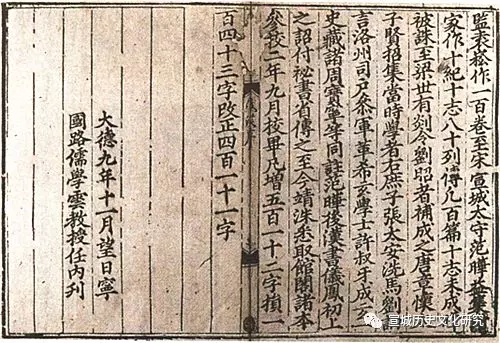 監袁崧作一百卷至宋宣城太守范曄益集
家作十紀十志八十列傳凡百篇十志未成
被誅至梁世有剡令劉昭者補成之唐章懷
子賢招集當時學者右庶子張太安洗馬劉
言洛州司戶參軍革希玄學士許叔牙成玄一
史藏諸周寶寧等同註范曄後漢書儀鳳初上
之詔付秘書省傳之至今靖洙悉取館閣諸本
參校二年九月校畢凡增五百一十二字損一
百四十三字改正四百一十一字
大德九年十一月望日寧
國路儒學雲教授任内刊
宣城历史文化研究